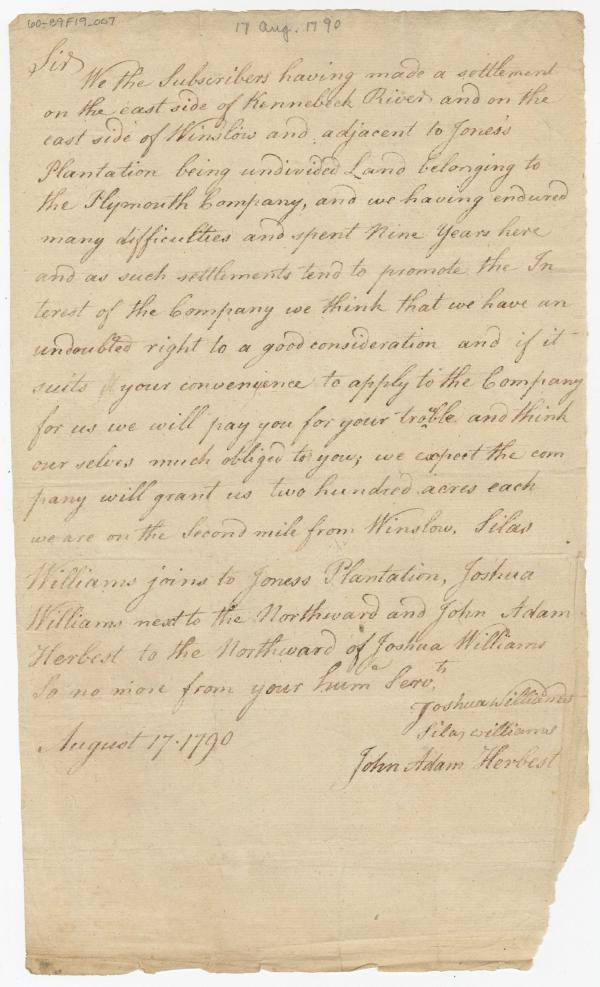 60-E9F19_007
17 Aug. 1790
Sir
We the Subscribers having made a settlement
on the east side of Kennebeck River and on the
east side of Winslow and adjacent to Jones's
Plantation being undivided Land belonging to
the Plymouth Company, and we having endured
many difficulties and spent Nine Years here
and as such settlements tend to promote the In
terest of the Company we think that we have an
undoubted right to a good consideration and if it
suits your convenience to apply to the Company
for us we will pay you for your trouble and think
our selves much obliged to you; we expect the com
pany will grant us two hundred acres each
we are on the Second mile from Winslow, Silas
Williams joins to Joness Plantation, Joshua
Williams next to the Northward and John Adam
Herbest to the Northward of Joshua Williams
So no more from your hume Servts
Joshua Williams
Silas Williams
August 17. 1790
John Adam Herbest